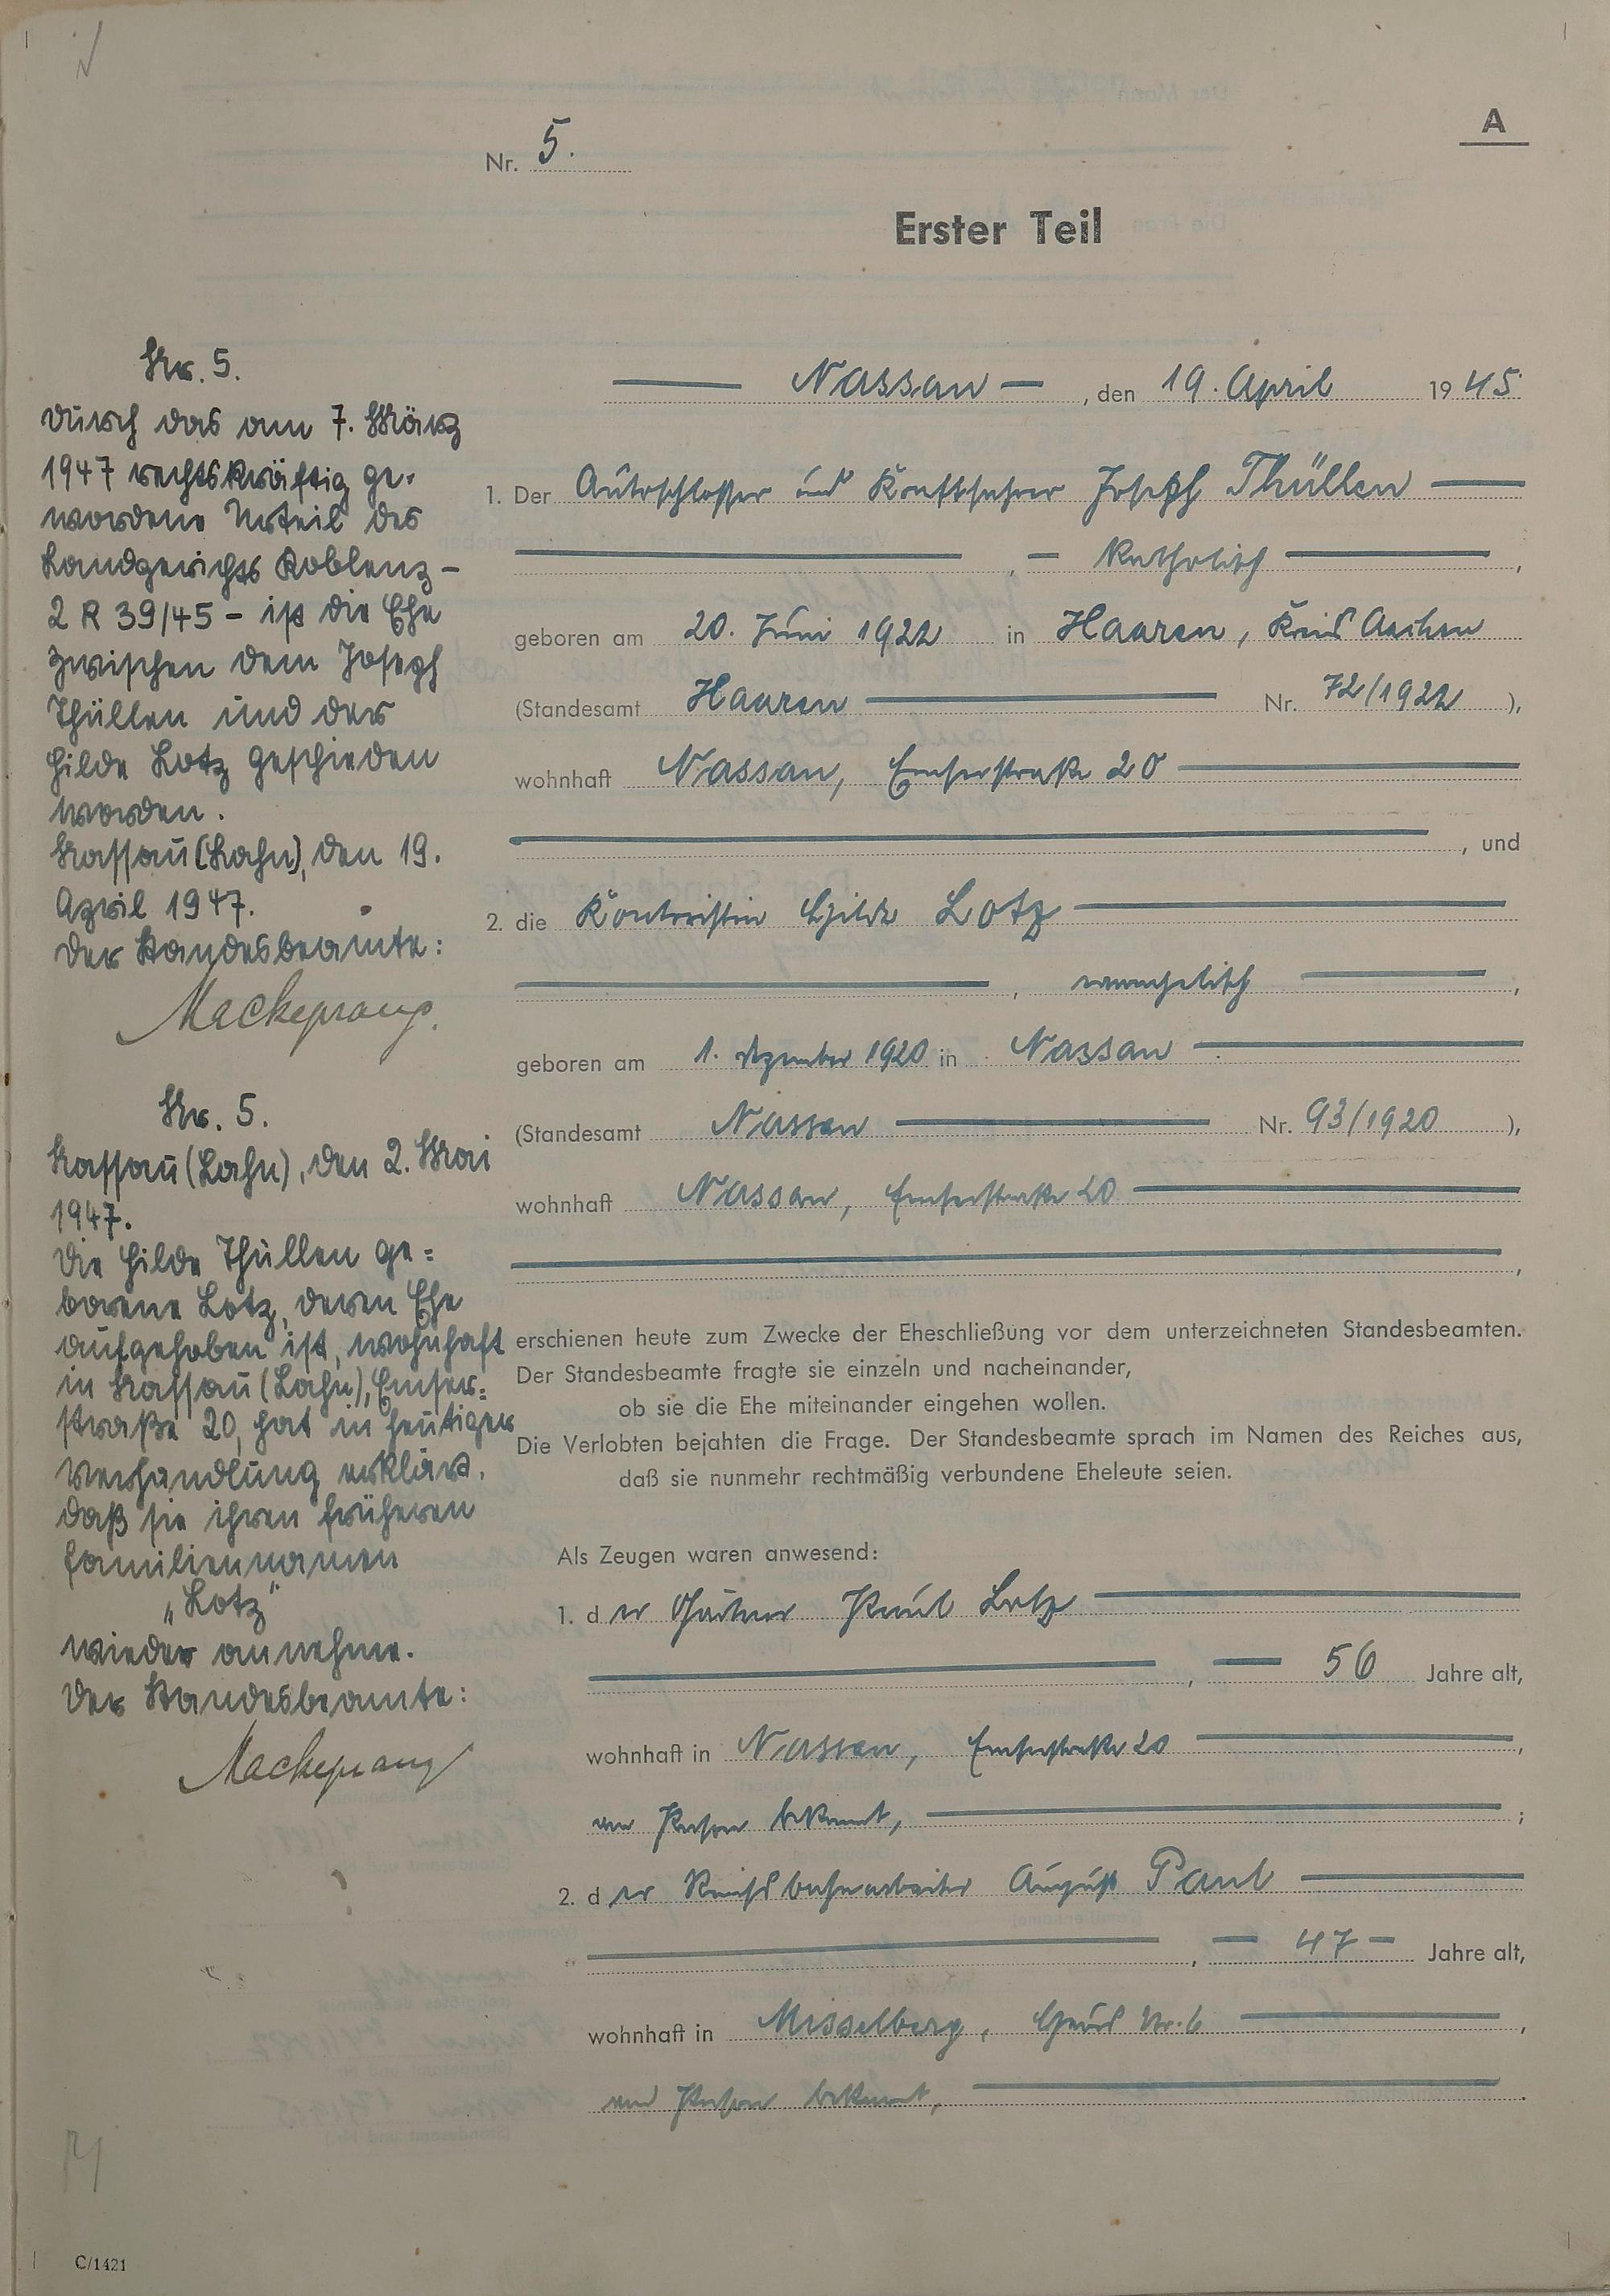 A
Nr. 5.
Erster Teil
Nassau, den 19. April 1945
1. Der Autoschlosser und Kraftfahrer Joseph Thüllen
, katholisch,
geboren am 20. Juni 1922 in Haaren, Kreis Aachen
(Standesamt Haaren Nr. 72/1922),
wohnhaft Nassau, Emserstraße 20
, und
2. die Kontoristin Hilde Lotz
, evangelisch,
geboren am 1. Dezember 1920 in Nassau
(Standesamt Nassau Nr. 93/1920),
wohnhaft Nassau, Emserstraße 20
,
erschienen heute zum Zwecke der Eheschließung vor dem unterzeichneten Standesbeamten.
Der Standesbeamte fragte sie einzeln und nacheinander,
ob sie die Ehe miteinander eingehen wollen.
Die Verlobten bejahten die Frage. Der Standesbeamte sprach im Namen des Reiches aus,
daß sie nunmehr rechtmäßig verbundene Eheleute seien.
Als Zeugen waren anwesend:
1. der Gärtner Paul Lotz
, 56 Jahre alt,
wohnhaft in Nassau, Emserstraße 20,
von Person bekannt,;
2. der Reichsbahnarbeiter August Paul
, 47 Jahre alt,
wohnhaft in Misselberg, Haus Nr. 6,
von Person bekannt,.
Nr. 5.
Durch das am 7. März
1947 rechtskräftig ge-
wordene Urteil des
Landgerichts Koblenz -
2 R 39/45 - ist die Ehe
zwischen dem Joseph
Thüllen und der
Hilde Lotz geschieden
worden.
Nassau (Lahn), den 19.
April 1947.
Der Standesbeamte:
Mackeprang.
Nr. 5.
Nassau (Lahn), den 2. Mai
1947.
Die Hilde Thüllen ge=
borene Lotz, deren Ehe
aufgehoben ist, wohnhaft
in Nassau (Lahn), Emser=
straße 20, hat in heutiger
Verhandlung erklärt,
daß sie ihren früheren
Familiennamen
„Lotz"
wieder annehme.
Der Standesbeamte:
Mackeprang
C/1421